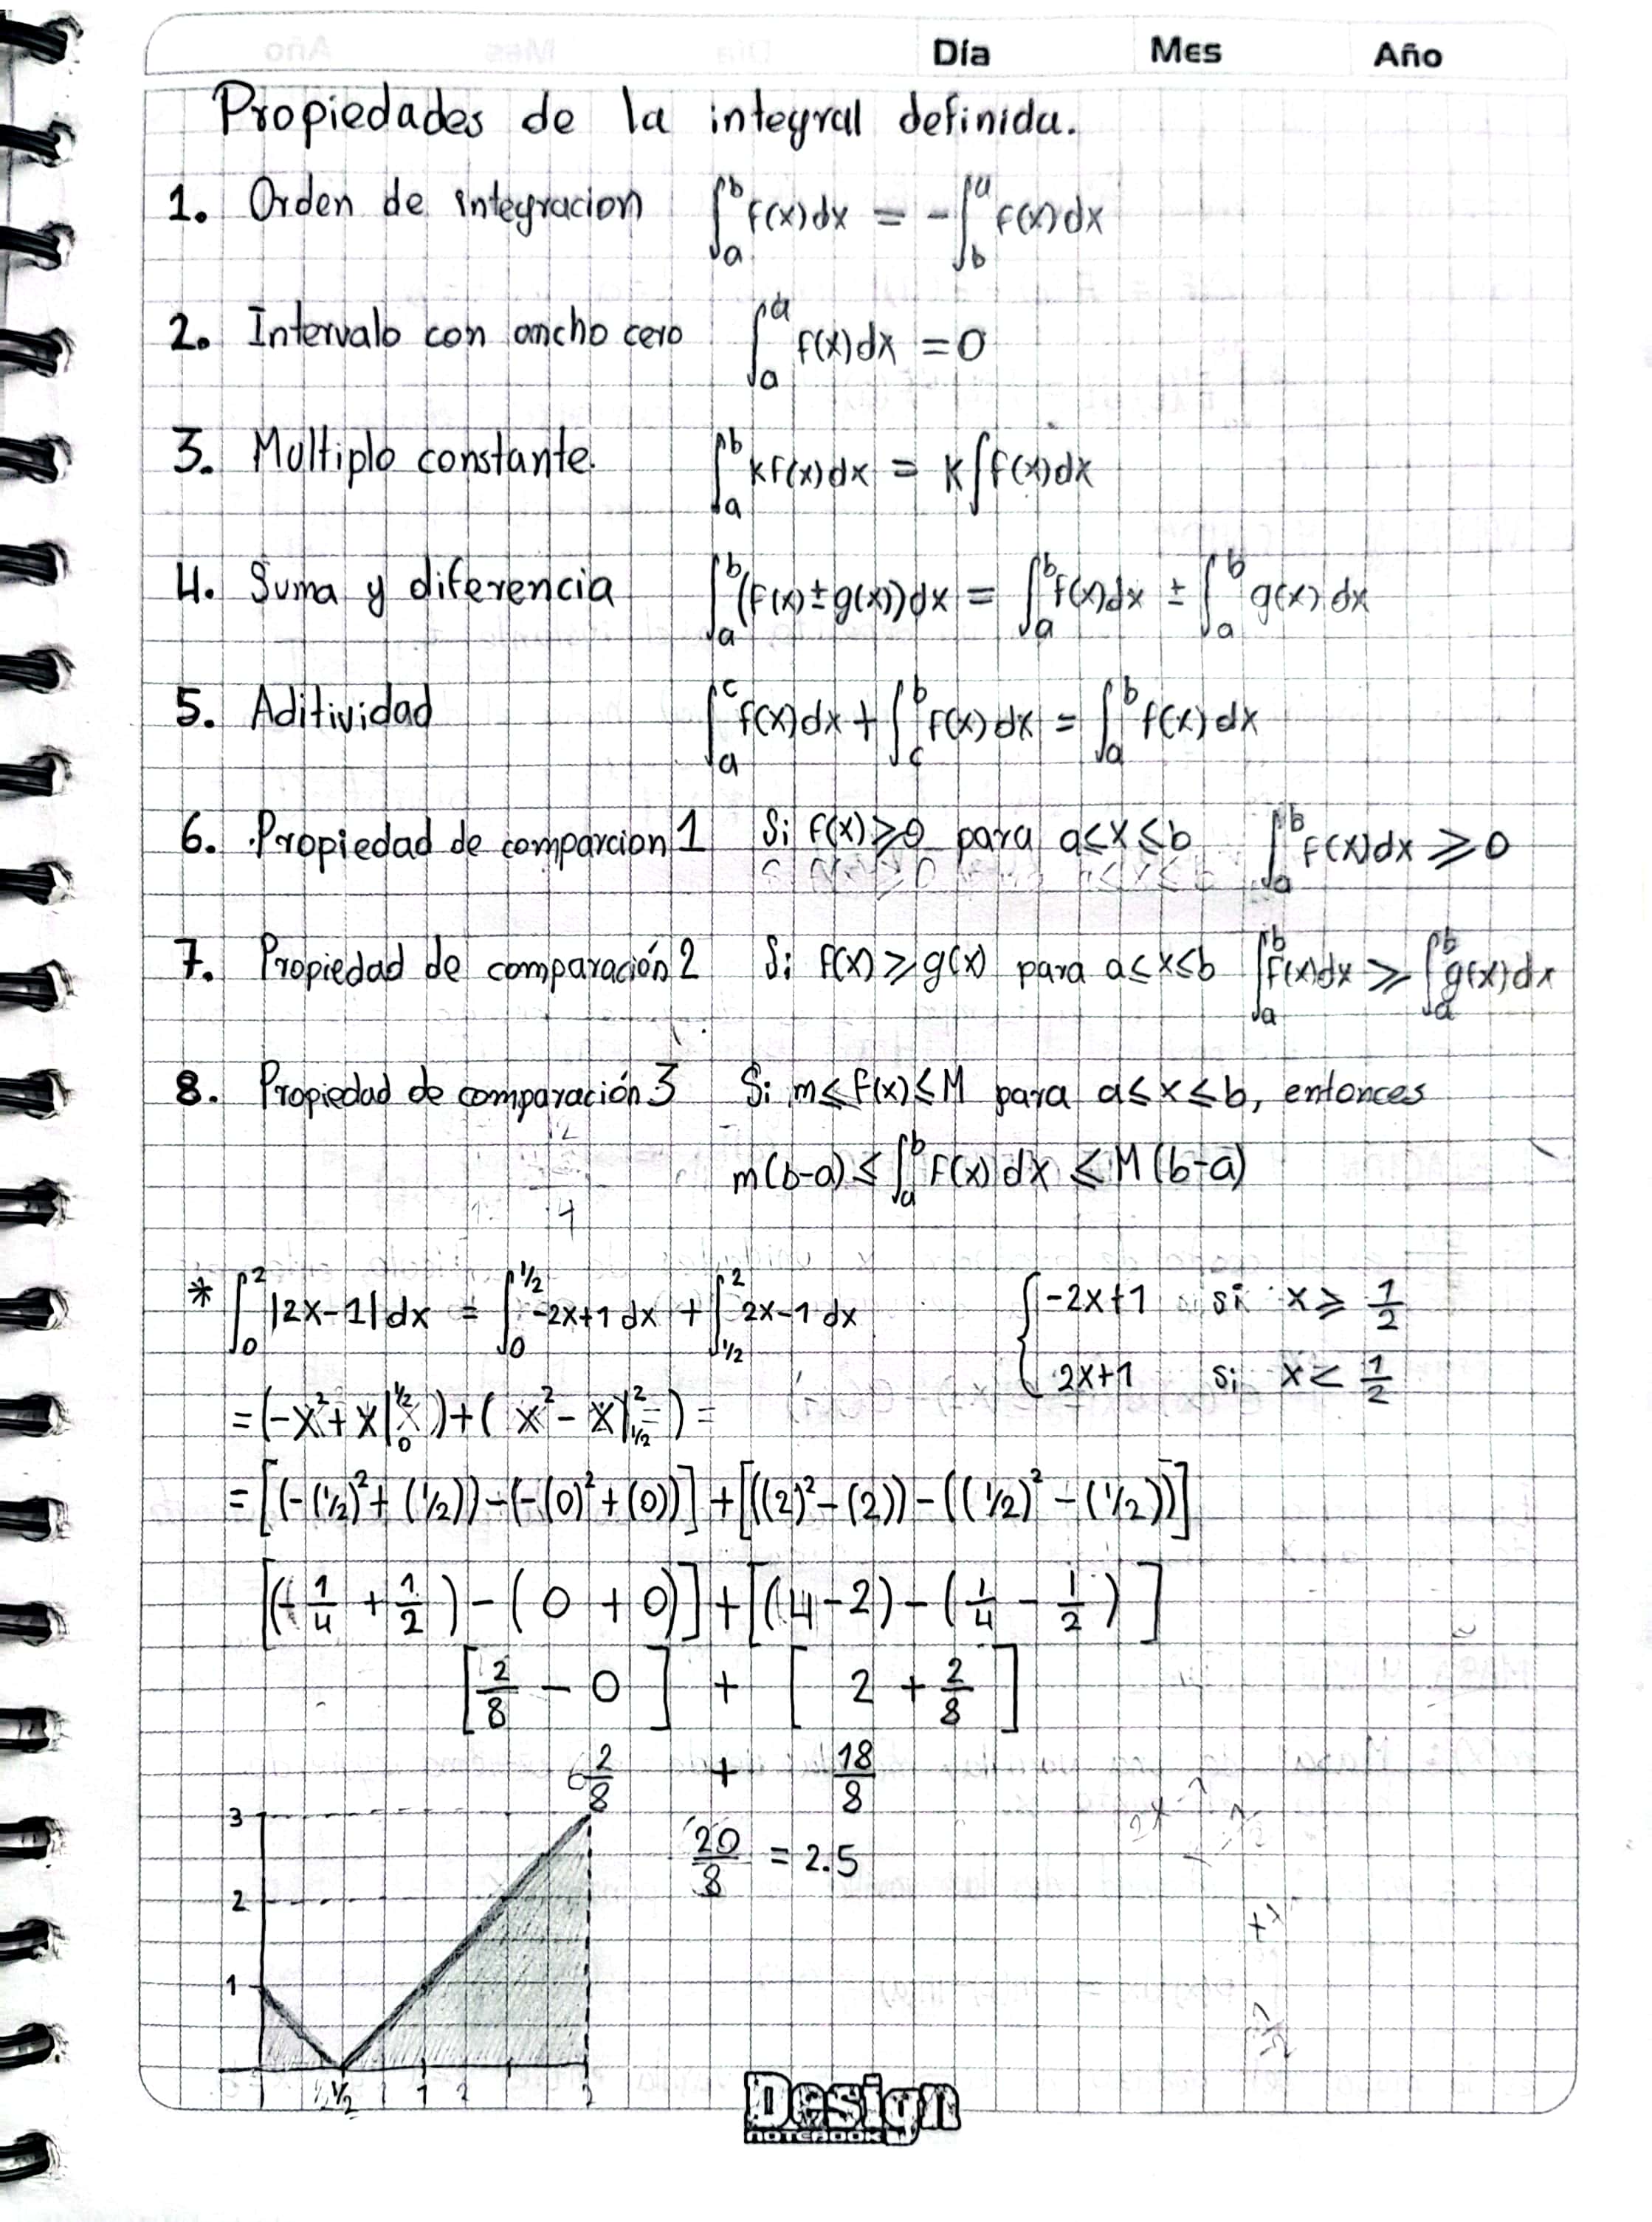 Día Mes Año
Propiedades de la integral definida.
1. Orden de integracion ∫_a^b f(x)dx = -∫_b^a f(x)dx
2. Intervalo con ancho cero ∫_a^a f(x)dx = 0
3. Multiplo constante. ∫_a^b kf(x)dx = k∫f(x)dx
4. Suma y diferencia ∫_a^b (f(x)±g(x))dx = ∫_a^b f(x)dx ± ∫_a^b g(x)dx
5. Aditividad ∫_a^c f(x)dx + ∫_c^b f(x)dx = ∫_a^b f(x)dx
6. Propiedad de comparcion 1 Si f(x)⩾0 para a≤x≤b ∫_a^b f(x)dx ⩾ 0
7. Propiedad de comparación 2 Si f(x)⩾g(x) para a≤x≤b ∫_a^b f(x)dx ⩾ ∫_a^b g(x)dx
8. Propiedad de comparación 3 Si m≤f(x)≤M para a≤x≤b, entonces
m(b-a) ≤ ∫_a^b f(x)dx ≤ M(b-a)
* ∫_0^2 |2x-1|dx = ∫_0^{1/2} -2x+1 dx + ∫_{1/2}^2 2x-1 dx
{ -2x+1 si x⩾ 1/2
2x+1 si x< 1/2
= (-x²+x|_0^{1/2}) + (x²-x|_{1/2}^2) =
= [(-(1/2)²+(1/2))-(-(0)²+(0))] + [((2)²-(2))-((1/2)²-(1/2))]
[(-1/4 + 1/2) - (0+0)] + [(4-2) - (1/4 - 1/2)]
[2/8 - 0] + [2 + 2/8]
2/8 + 18/8
20/8 = 2.5
3
2
1
1/2 1 2
Design
NOTEBOOK